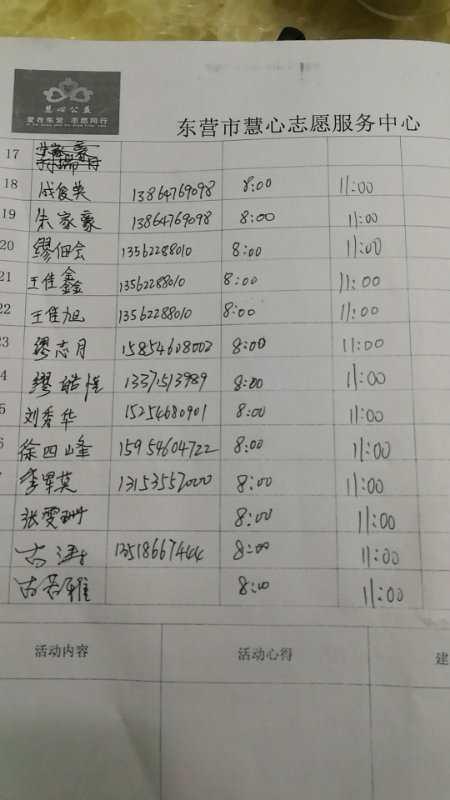 慧心公益
爱在东营 志愿同行
东营市慧心志愿服务中心
17
18 成俊英 13864769098 8:00 11:00
19 朱家豪 13864769098 8:00 11:00
20 缪佃会 13562288010 8:00 11:00
21 王佳鑫 13562288010 8:00 11:00
22 王佳旭 13562288010 8:00 11:00
23 缪志月 15854608002 8:00 11:00
4 缪皓 13371513989 8:00 11:00
5 刘秀华 15254680901 8:00 11:00
6 徐四峰 15954604722 8:00 11:00
李翠英 13153557000 8:00 11:00
张雯 8:00 11:00
古 13518667444 8:00 11:00
古若雅 8:00 11:00
活动内容 活动心得 建